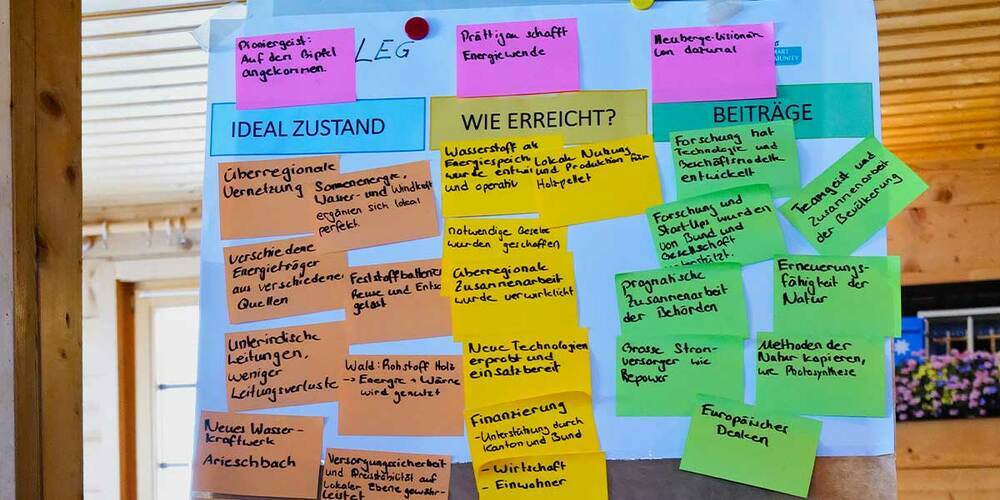 Pioniergeist:
Auf dem Gipfel
angekommen.
LEG
Prättigau schafft
Energiewende
von
MUNITY
IDEAL ZUSTAND
WIE ERREICHT?
BEITRÄGE
überregionale
Vernetzung
Sonnenenergie,
Wasser- und Windkraft
ergänzen sich lokal
perfekt.
verschiedene
Energieträger
aus verschiedenen
Quellen
Feststoffbatterien
Reuse und
gelöst
Unterirdische
Leitungen,
weniger
Leitungsverluste
Wald: Rohstoff Holz
-> Energie + Wärme
wird genutzt
Neues Wasser-
kraftwerk
Arieschbach
Versorgungssicherheit
und Preisstabilität auf
Lokaler Ebene gewähr-
leistet
Wasserstoff als
Energiespeich
wurde entwi
und operativ
Lokale Nutzung
und Produktion für
Holzpellet
notwendige Gesetze
wurden geschaffen
überregionale
Zusammenarbeit
wurde verwirklicht
Neue Technologien
erprobt und
einsatzbereit
Finanzierung
- Unterstützung durch
Kanton und Bund
- Wirtschaft
- Einwohner
Forschung hat
Technologie und
Geschäftsmodelle
entwickelt
Teamgeist und
Zusammenarbeit
der Bevölkerung
Forschung und
Start-Ups wurden
von Bund und
Gesellschaft
unterstützt.
pragmatische
Zusammenarbeit
der Behörden
Erneuerungs-
fähigkeit der
Natur
Grosse Strom-
versorger wie
Repower
Methoden der
Natur kopieren,
wie Photosynthese
Europäisches
Denken